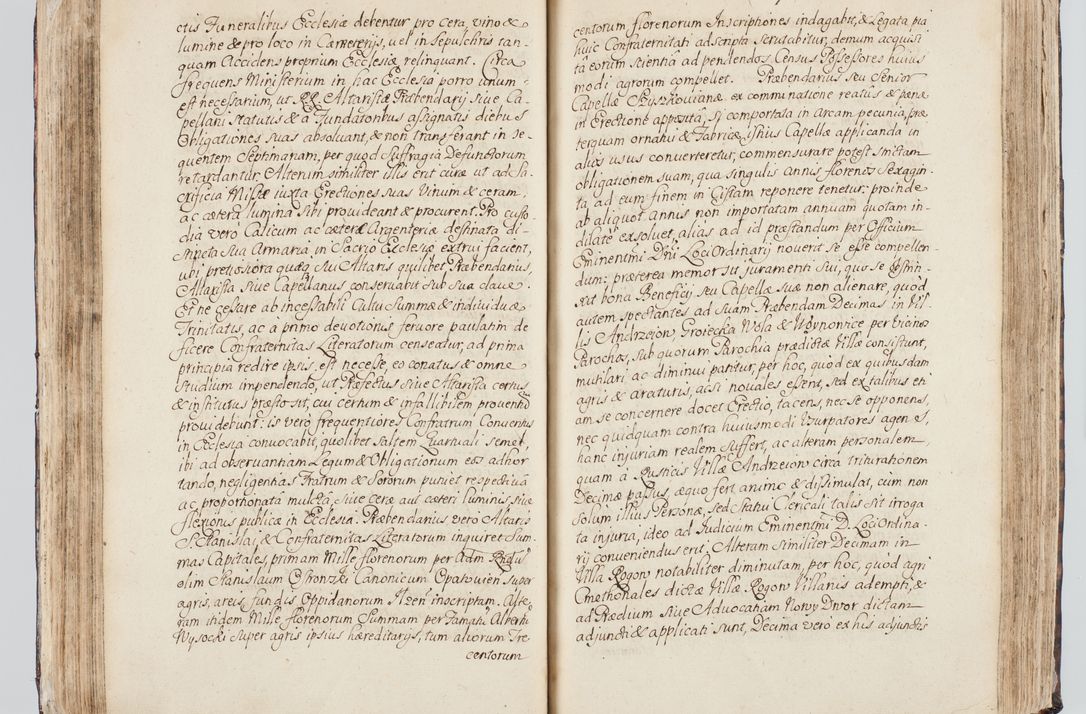 ctis Funeralibus Ecclesiæ debentur pro cera, vino &
lumine & pro loco in Cæmeterijs, vel in sepulchris tan-
quam Accidens proprium Ecclesiæ relinquant. Circa
frequens Ministerium in hac Ecclesia porro unum
est necessarium, ut RR. Altaristæ Præbendarij siue Ca-
pellani statutis & a Fundatoribus assignatis diebus
Obligationes suas absoluant, & non transferant in se-
quentem Septimanam, per quod suffragia Defunctorum
retardantur. Altenim similiter illis erit curæ ut ad Sa-
crificia Missæ iuxta Erectiones suas Vinum & ceram,
ac cætera lumina sibi prouideant & procurent. Pro custo-
dia vero Calicum ac cæteræ Argenteriæ destinata di-
stincta sua Armaria in Sacrio Ecclesiæ extrui facient,
ubi pretiosiora quæq sui Altaris quilibet Præbendarius,
Altarista siue Capellanus conseruabit sub sua claue.
Et ne cessare ab incessabili Cultu Summæ & indiuiduæ
Trinitatis, ac a primo deuotionis feruore paulatim de
ficere Confraternitas Literatorum censeatur, ad prima
principia redire ipsis est necesse, eo conatus & omne
studium impendendo, ut Præfectus siue Altarista certus
& institutus præsto sit, cui certum & infallibilem prouentū
prouidebunt: is vero frequentiores Confratrum Conuentus
in Ecclesia conuocabit, quolibet saltem Quartuali semel,
ibi ad obseruantiam Legum & Obligationum eos adhor
tando, negligentias Fratrum & Sororum puniet respectiuā
ac proportionatā mulctā, siue ceræ aut cæteri luminis siue
flexionis publicæ in Ecclesia. Præbendarius vero Altaris
S. Stanislai, & Confraternitas Literatorum inquiret Sum-
mas Capitales, primam Mille florenorum per Adm Rndū
olim Stanislaum Canonicum Opatouien super
agris, areis, fundis Oppidanorum inscriptam. Alte-
ram itidem Mille florenorum Summam per Famatū Albertū
Wysocki super agris ipsius hæreditarijs, tum aliorum Tre
centorum
centorum florenorum Inscriptiones indagabit, & Legata pia
huic Confraternitati adscripta scrutabitur, demum acquisi
tâ eorum scientia ad pendendos Census Possessores huius
modi agrorum compellet. Præbendarius seu Senior
Capellæ Szyszkouianæ ex comminatione reatûs & pena
in Erectione appositâ, si comportata in Arcam pecunia, præ
terquam ornatui & Fabricæ istius Capellæ applicanda in
alios usus conuerteretur, commensurare potest strictam
obligationem suam, qua singulis annis florenos Sexagin
ta, ad eum finem in Cistam reponere tenetur: proinde
ab aliquot annis non importatam annuam quotam in-
dilatè exsoluet, alias ad id præstandum per Officium
Eminentmi Dni Loci Ordinarij nouerit se esse compellen-
dum: præterea memor sit juramenti sui, quo se
xit bona Beneficij seu Capellæ suæ non alienare, quod
autem spectantes ad suam Præbendam Decimas in Vil-
lis Andrzeiow, Groiecka Wola & Wdynowice per
Parochos, sub quorum Parochia prædictæ Villæ consistunt,
mutilari ac diminui patitur, per hoc, quod ex quibusdam
agris & araturis, acsi nouales essent, sed ex talibus eti
am se concernere docet Erectio, tacens, nec se opponens,
nec quidquam contra huiusmodi Vsurpatores agens,
hanc injuriam realem suffert, ac alteram personalem,
quam à Rusticis Villæ Andrzeiow circa triturationem
Decimæ passus, æquo fert animo & dissimulat, cum non
solum illius Personæ, sed statui Clericali talis sit irroga
ta injuria, ideo ad Iudicium Eminentmi D. Loci Ordina-
rij conueniendus erit. Alteram similiter Decimam in
Villa Rogow notabiliter diminutam, per hoc, quod agri
Cmethonales dictæ Villæ Rogow Villanis adempti, &
ad Prædium siue Aduocatiam Nowy Dwor dictam
adjuncti & applicati sunt, Decima verò ex his adjunctis